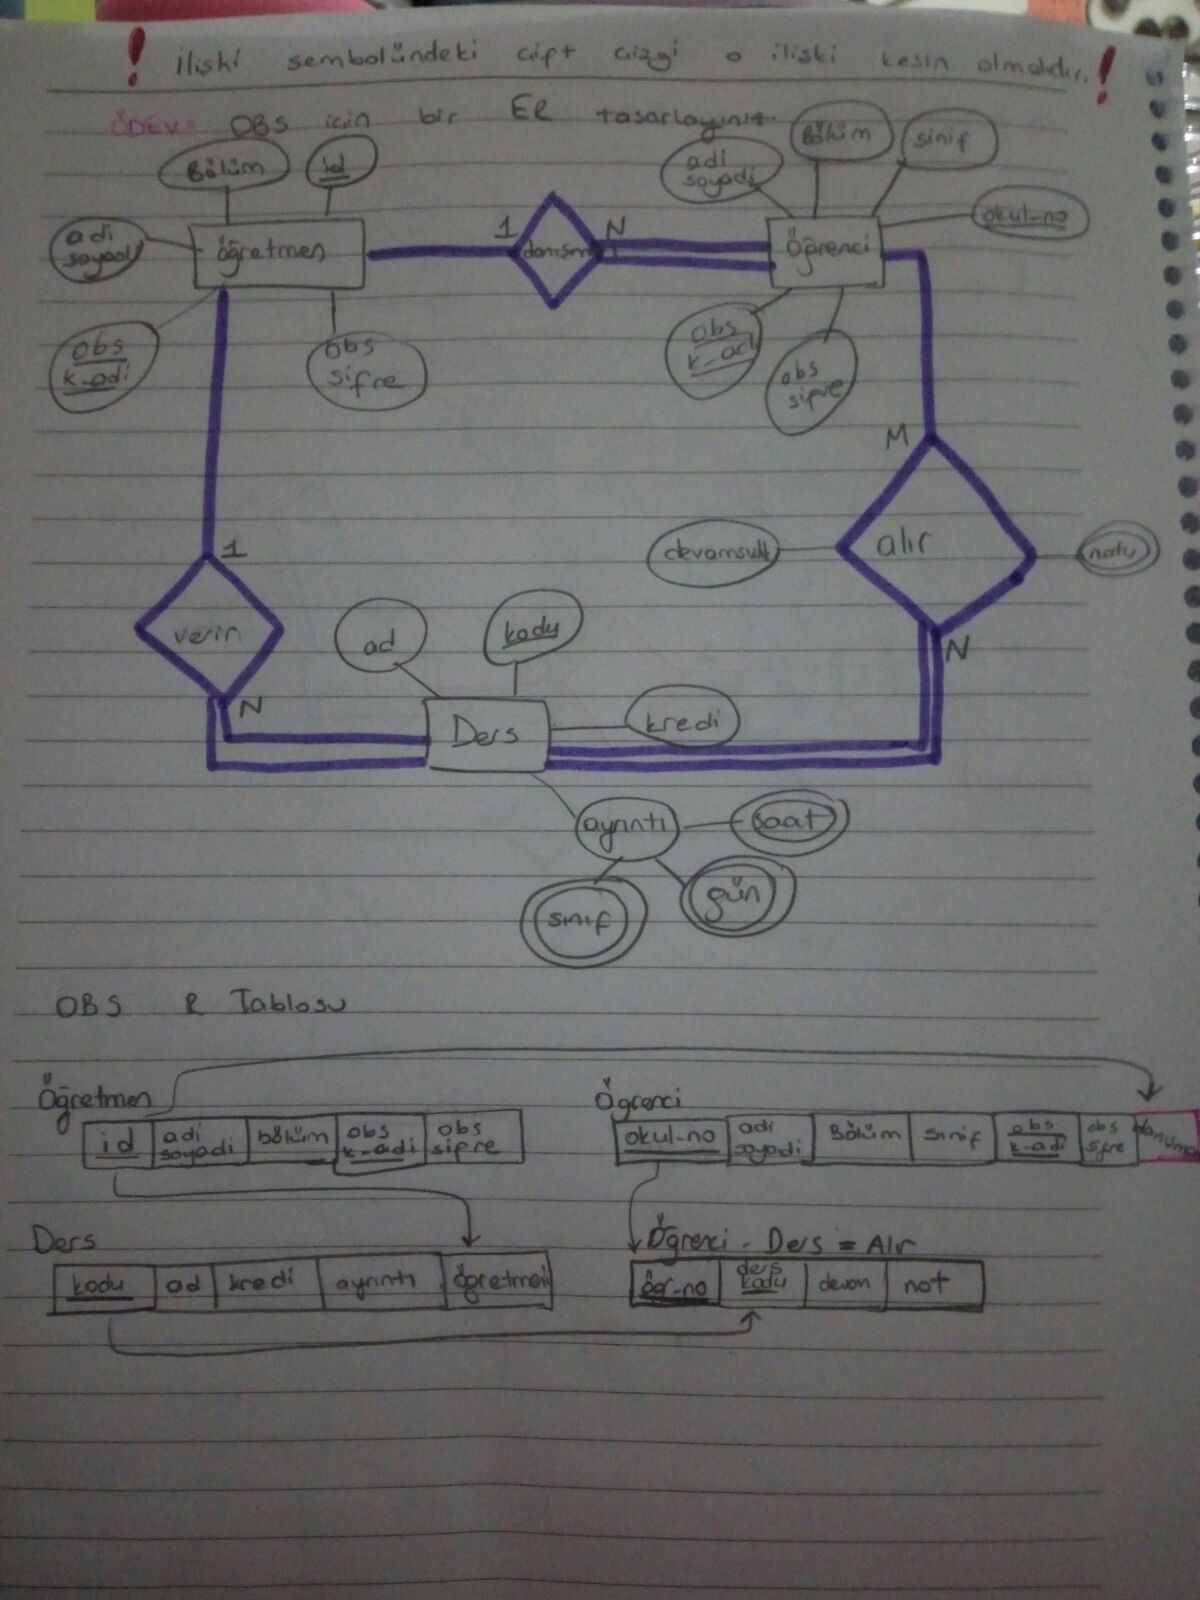 ! ilişki sembolündeki çift çizgi o ilişki kesin olmalıdır. !
ÖDEV= OBS için bir ER tasarlayınız
Bölüm
id
adi soyadi
Bölüm
sinif
okul-no
adi
soyadi
Öğretmen
1
danışma
N
Öğrenci
obs
k-adi
obs
sifre
obs
k-adi
obs
sifre
M
devamsızlık
alır
notu
N
1
verir
N
ad
kodu
Ders
kredi
ayrıntı
saat
gün
sınıf
OBS R Tablosu
Öğretmen
id
adi
soyadi
bölüm
obs
k-adi
obs
sifre
Öğrenci
okul-no
adi
soyadi
Bölüm
sınıf
obs
k-adi
obs
sifre
danışma
Ders
kodu
ad
kredi
ayrıntı
öğretmen
Öğrenci - Ders = Alır
öğr-no
ders
kodu
devam
not